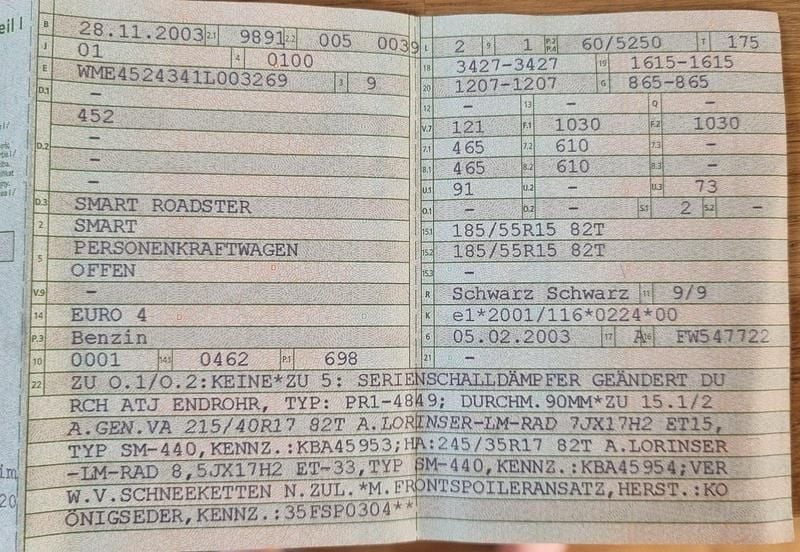 eil I
B 28.11.2003 2.1 9891 2.2 005 0039
J 01 4 0100
E WME4524341L003269 3 9
D.1 –
452
–
D.2 –
–
D.3 SMART ROADSTER
2 SMART
5 PERSONENKRAFTWAGEN
OFFEN
V.9 –
14 EURO 4
P.3 Benzin
10 0001 14.1 0462 P.1 698
L 2 9 1 P.2 P.4 60/5250 T 175
18 3427-3427 19 1615-1615
20 1207-1207 G 865-865
12 – 13 – Q –
V.7 121 F.1 1030 F.2 1030
7.1 465 7.2 610 7.3 –
8.1 465 8.2 610 8.3 –
U.1 91 U.2 – U.3 73
O.1 – O.2 – S.1 2 S.2 –
15.1 185/55R15 82T
15.2 185/55R15 82T
15.3 –
R Schwarz Schwarz 11 9/9
K e1*2001/116*0224*00
6 05.02.2003 17 A 16 FW547722
21 –
22 ZU O.1/O.2:KEINE*ZU 5: SERIENSCHALLDÄMPFER GEÄNDERT DU
RCH ATJ ENDROHR, TYP: PR1-4849; DURCHM.90MM*ZU 15.1/2
A.GEN.VA 215/40R17 82T A.LORINSER-LM-RAD 7JX17H2 ET15,
TYP SM-440,KENNZ.:KBA45953;HA:245/35R17 82T A.LORINSER
-LM-RAD 8,5JX17H2 ET-33,TYP SM-440,KENNZ.:KBA45954;VER
W.V.SCHNEEKETTEN N.ZUL.*M.FRONTSPOILERANSATZ,HERST.:KO
ÖNIGSEDER,KENNZ.:35FSP0304**
im
20